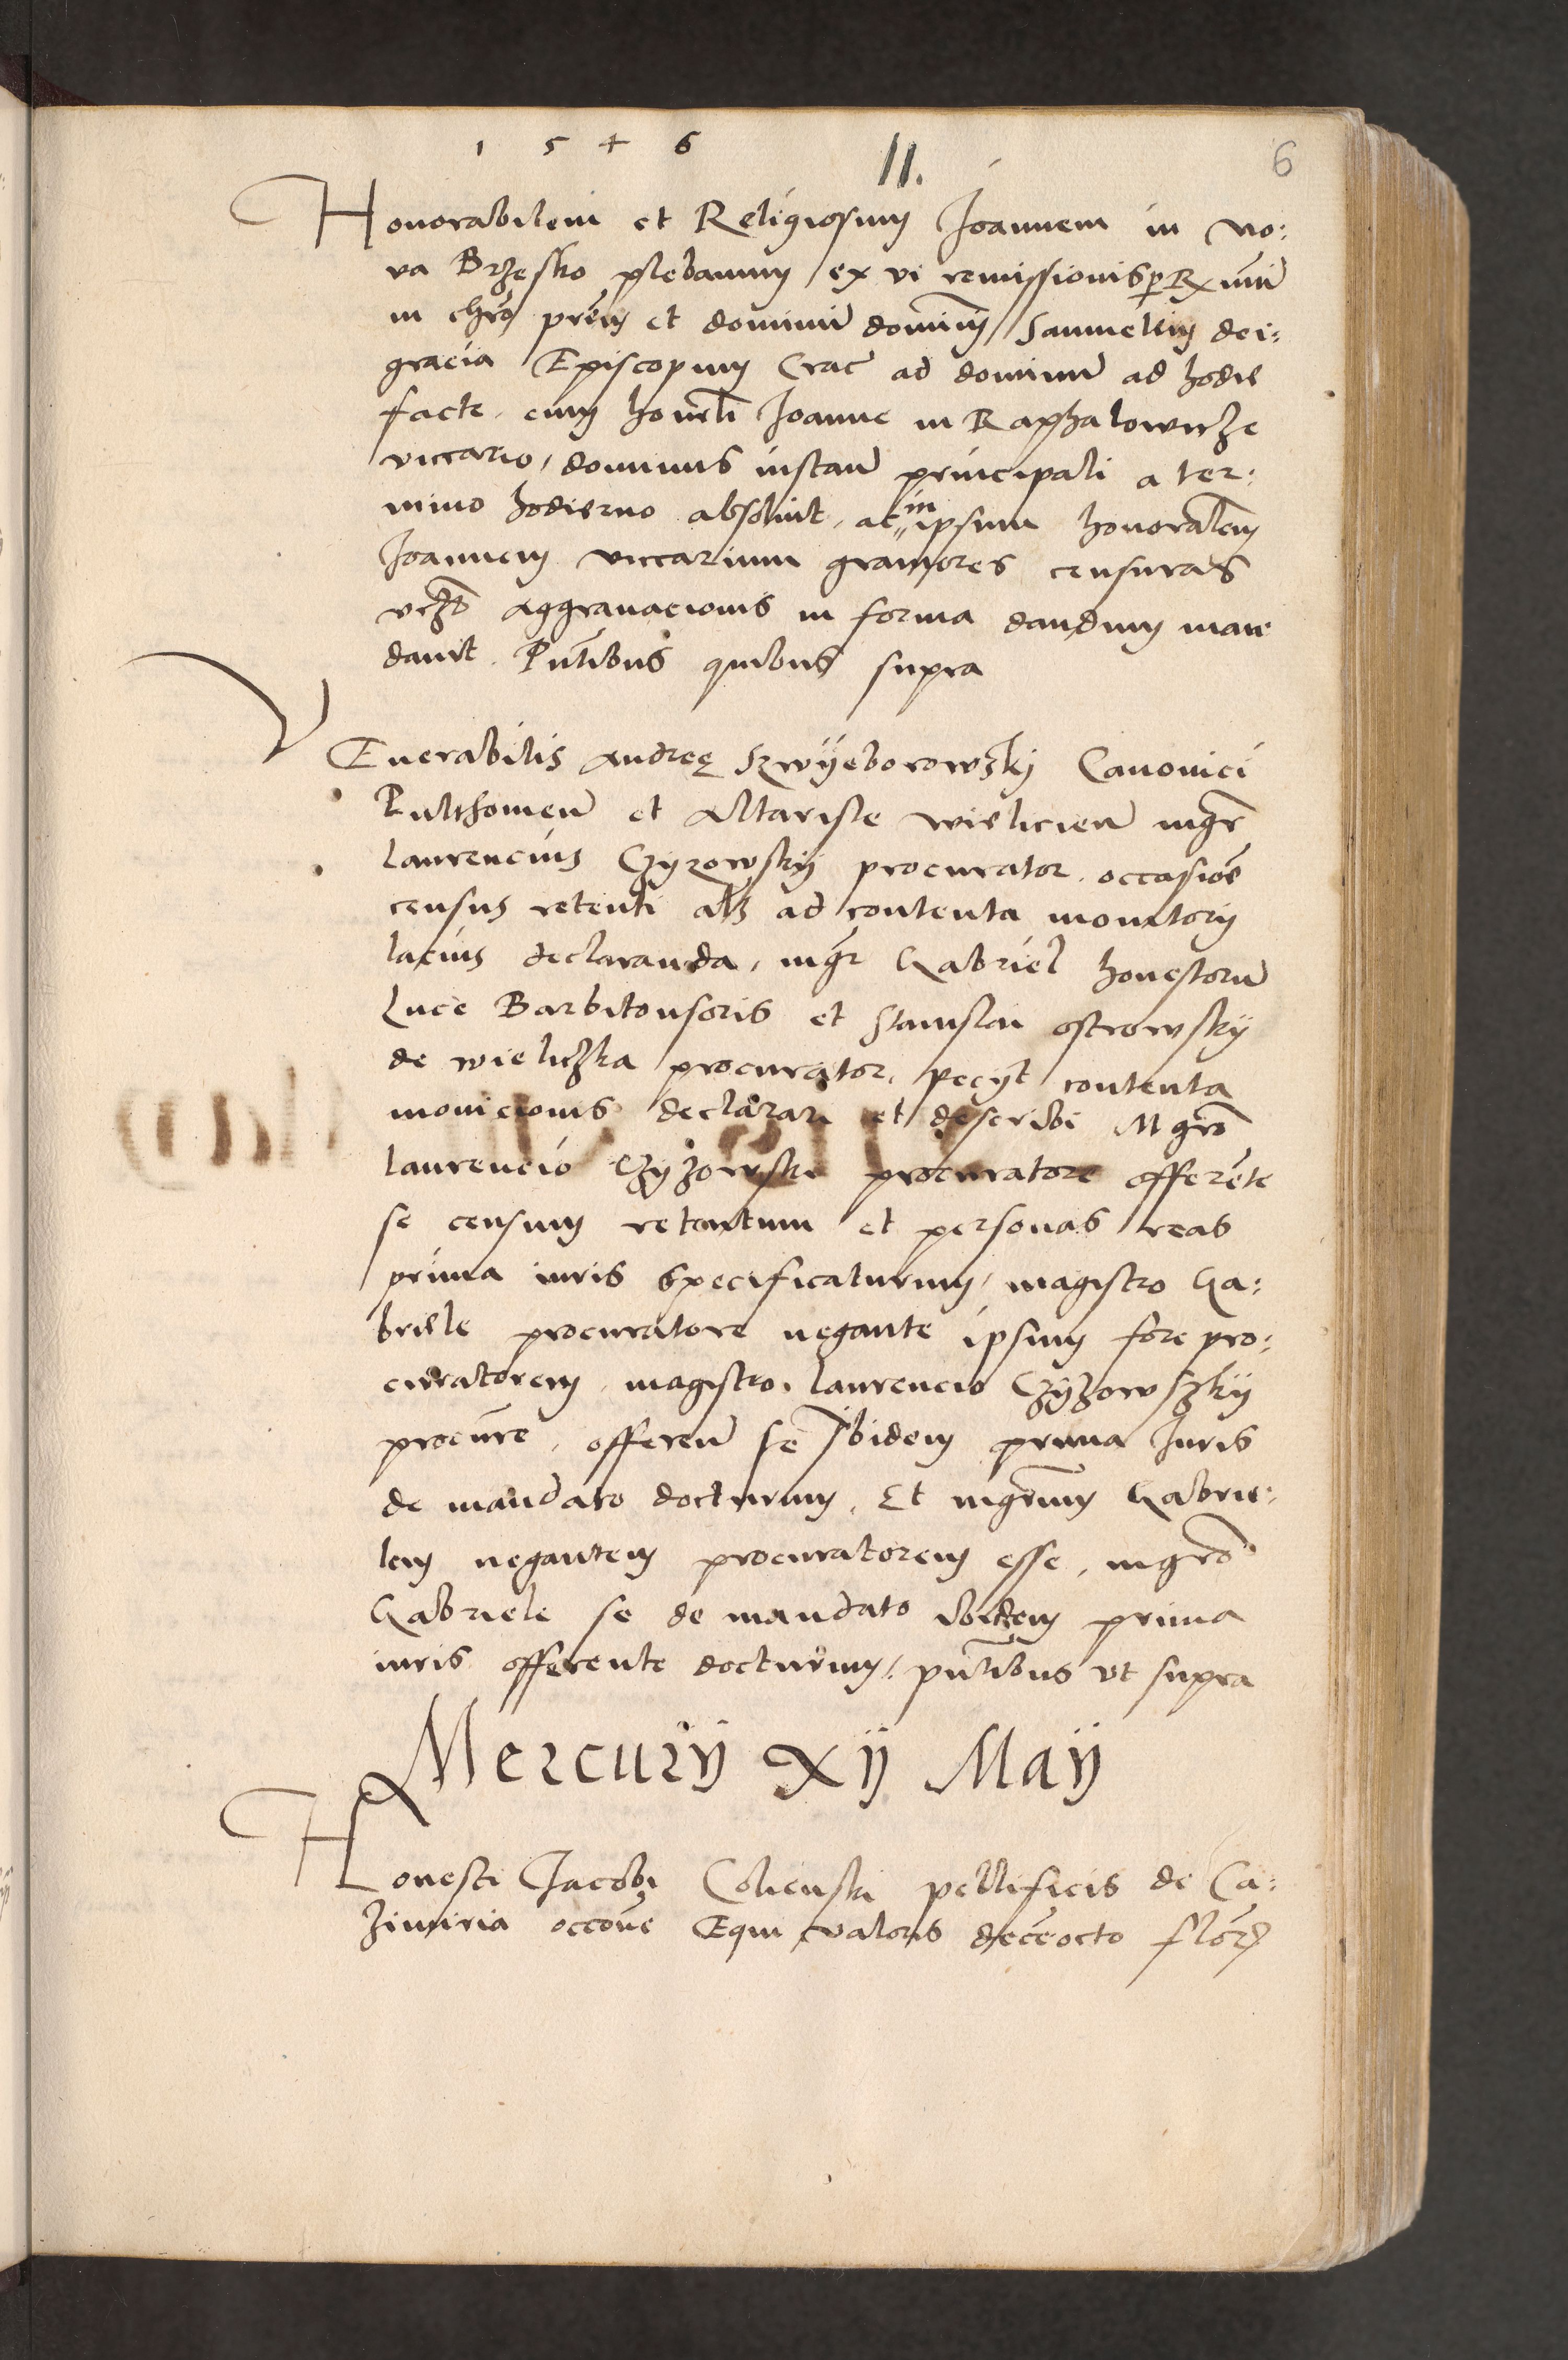 1 5 4 6
11.
6
Honorabilem et Religiosum Joannem in No:
va Brzesko plebanum ex vi remissionis p Rx mū
in chro prem et dominū dominū Samuelem dei:
gracia Episcopum Crac ad dominū ad hodie
facte, cum honrli Joanne in Raphalowicze
viccario, dominus instan principali a ter:
mino hodierno absolvit, ac in ipsum honoralem
Joannem viccarium graviores censuras
vczt Aggravacionis in forma dandum man
davit. Pntibus quibus supra
VEnerabilis Andreę Szwyeborowsky Canonici
Pulthowien et Altariste wielicien mgr
laurencius Czyzowsky procurator occasioe
census retenti als ad contenta monitorij
lacius declaranda, mgr Gabriel honestorū
Luce Barbitonsoris et Stanislai ostrowsky
de wieliczka procurator, pecyt contenta
monicionis declarari et describi Mgro
laurencio Czyzowski procuratore offerēte
se censum retentum et personas reas
prima iuris specificaturum, magistro Ga:
briele procuratore negante ipsum fore pro:
curatorem, magistro laurencio Czyzowszky
procūre, offeren se Ibidem prima Juris
de mandato docturum, Et mgrum Gabrie:
lem negantem procuratorem esse, mgro
Gabriele se de mandato ibidem prima
iuris offerente docturum, pntibus ut supra
Mercurij xij Maij
Honesti Jacobi Colienski pellificis de Ca:
zimiria occone Equi valoris deceocto flor